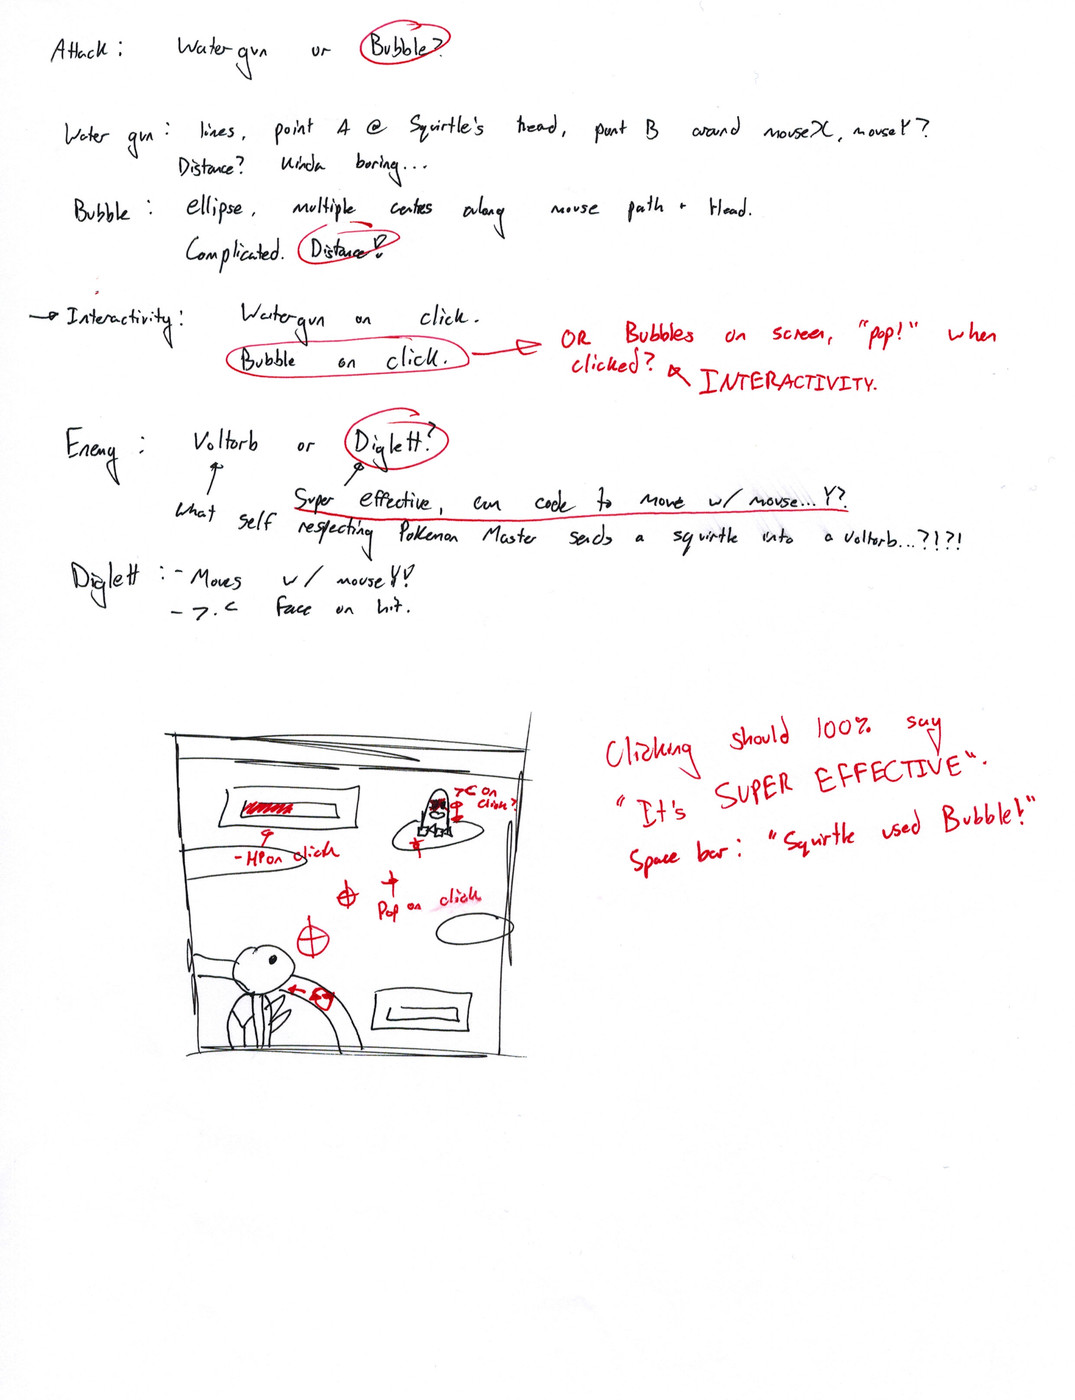 Attack: Water gun or Bubble?
Water gun: lines, point A @ Squirtle's head, point B around mouseX, mouseY?
Distance? Kinda boring...
Bubble: ellipse, multiple centres along mouse path + Head.
Complicated. Distance!
→ Interactivity: Watergun on click.
Bubble on click. → OR Bubbles on screen, "pop!" when
clicked? ↖ INTERACTIVITY.
Enemy: Voltorb or Diglett?
Super effective, can code to move w/ mouse...Y?
What self respecting Pokemon Master sends a squirtle into a Voltorb...?!?!
Diglett: - Moves w/ mouseY!
- >.< face on hit.
Clicking should 100% say
"It's SUPER EFFECTIVE".
Space bar: "Squirtle used Bubble!"
>< on
click?
- HP on click
Pop on click